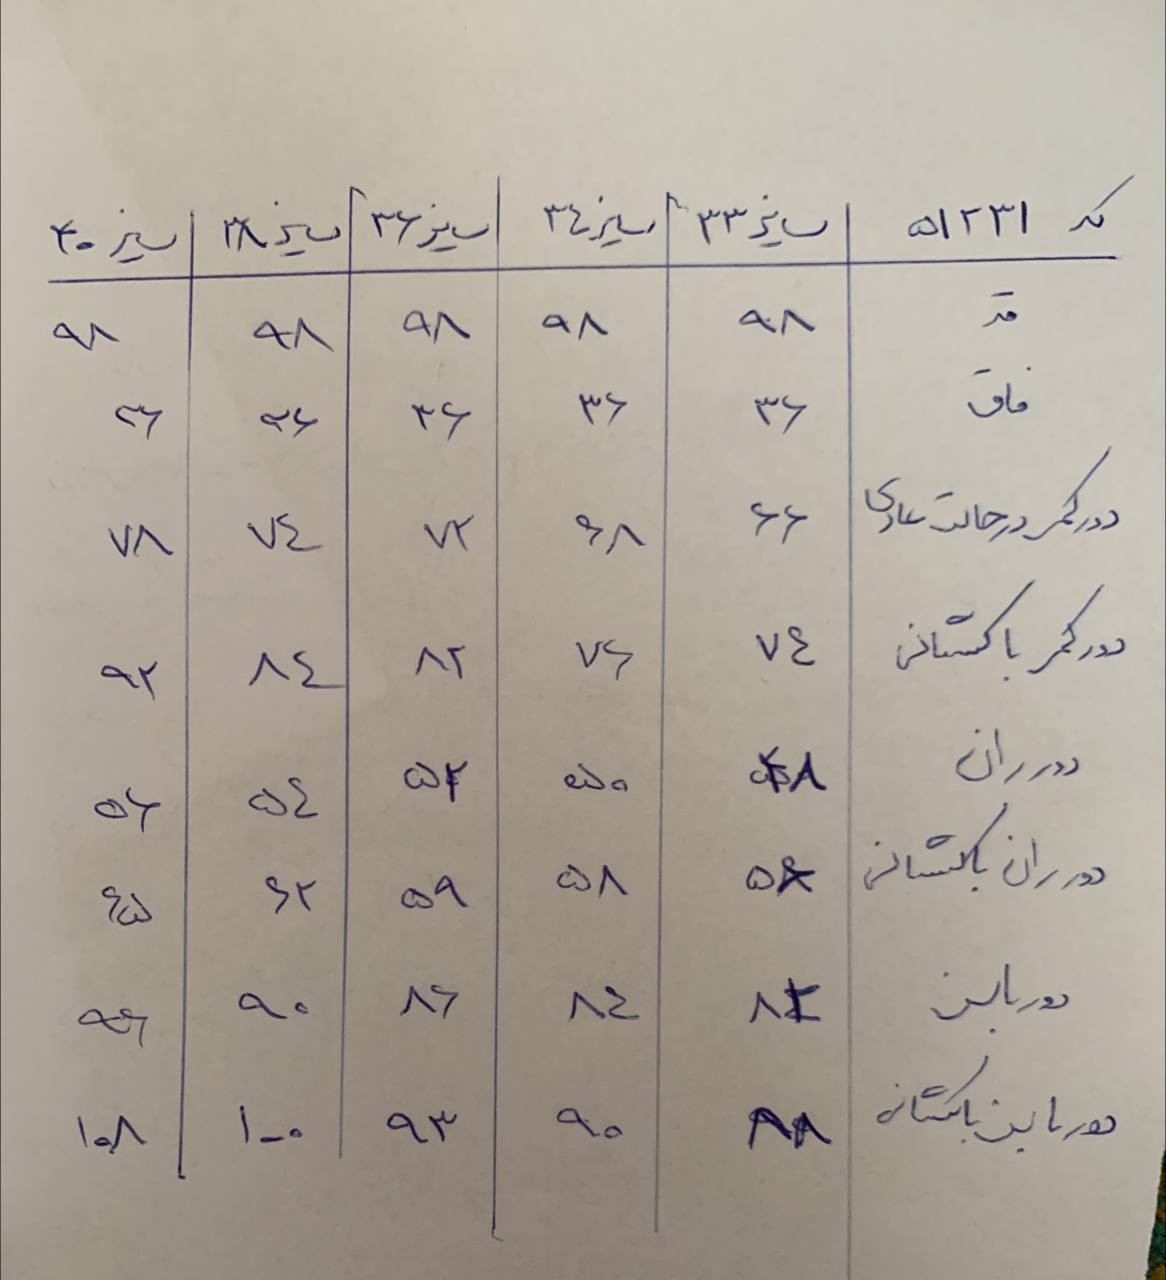 کد ۵۱۲۳۱ سایز ۳۳ سایز ۳۴ سایز ۳۶ سایز ۳۸ سایز ۴۰
قد ۹۸ ۹۸ ۹۸ ۹۸ ۹۸
فاق ۳۶ ۳۶ ۳۶ ۳۶ ۳۶
دور کمر در حالت عادی ۶۶ ۶۸ ۷۲ ۷۴ ۷۸
دور کمر با کشسانی ۷۴ ۷۶ ۸۲ ۸۴ ۹۲
دور ران ۴۸ ۵۰ ۵۲ ۵۴ ۵۶
دور ران با کشسانی ۵۶ ۵۸ ۵۹ ۶۲ ۶۵
دور باسن ۸۲ ۸۴ ۸۶ ۹۰ ۹۶
دور باسن با کشسانی ۸۸ ۹۰ ۹۳ ۱۰۰ ۱۰۸